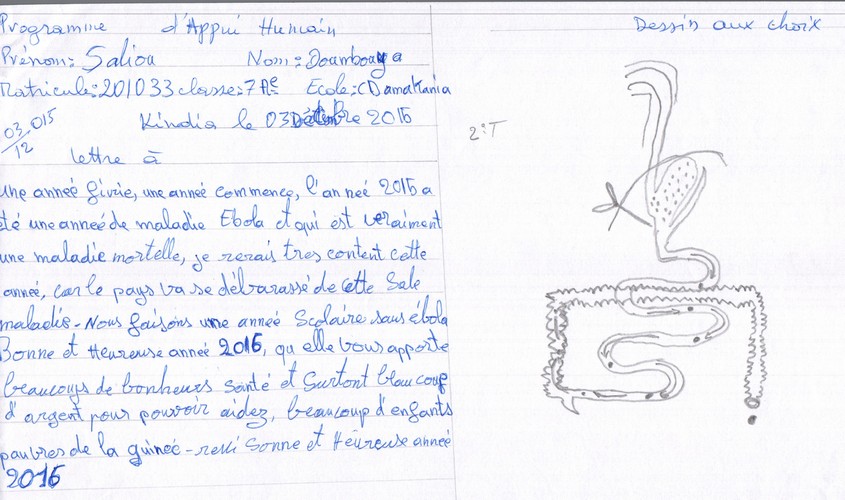 Programme d'Appui Humain
Dessin aux choix
Prénom: Saliou Nom: Doumbouya
Matricule: 201033 classe: 7Ae Ecole: CDamakania
03/12 015
Kindia le 03 2015
2:T
lettre à
une anneé finie, une anneé commence, l'anneé 2015 a
été une anneé de maladie Ebola et qui est veraiment
une maladie mortelle, je serais tres content cette
anneé, car le pays va se débarassé de cette Sale
maladie - Nous faisons une anneé Scolaire sans ébola
Bonne et Heureuse anneé 2016, qu elle vous apporte
beaucoups de bonheurs santé et Surtout beaucoup
d'argent pour pouvoir aidez, beaucoup d'enfants
pauvres de la guineé - Bonne et Heureuse anneé
2016